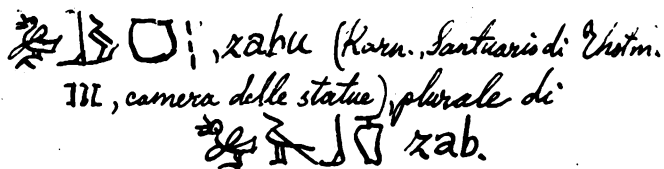 , zabu (Karn., Santuario di Thotm.
III, camera delle statue), plurale di
zab.